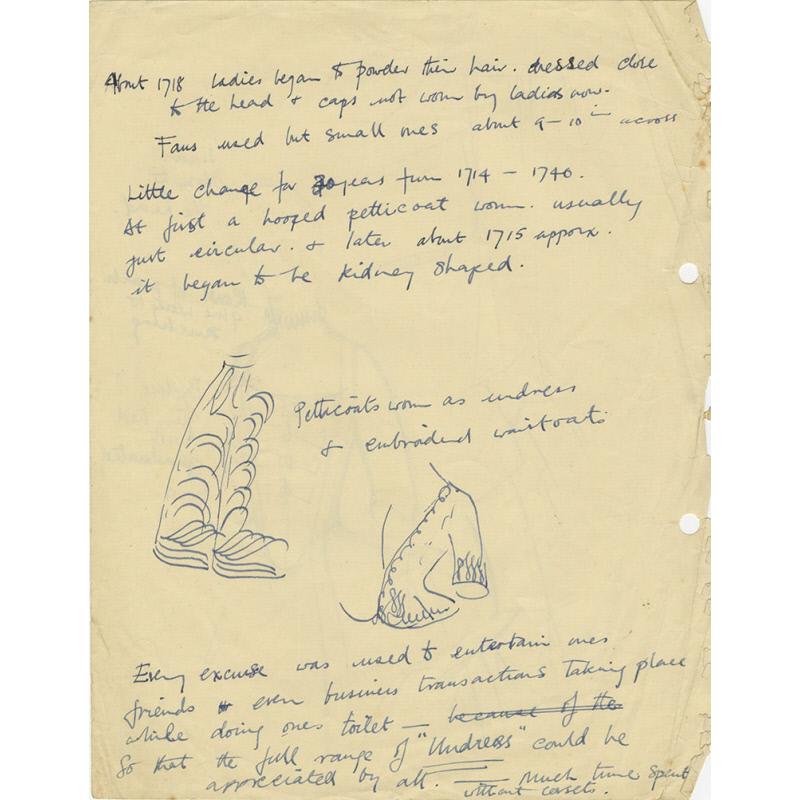 About 1718 Ladies began to powder their hair. dressed close
to the head & caps not worn by ladies now.
Fans used but small ones about 9-10 in across
Little change for 30 years from 1714 - 1740.
At first a hooped petticoat worn. usually
just circular. & later about 1715 approx.
it began to be kidney shaped.
Petticoats worn as undress
& embroidered waistcoats
Every excuse was used to entertain ones
friends & even business transactions taking place
while doing ones toilet — because of the
so that the full range of "Undress" could be
appreciated by all. — Much time spent
without corsets.